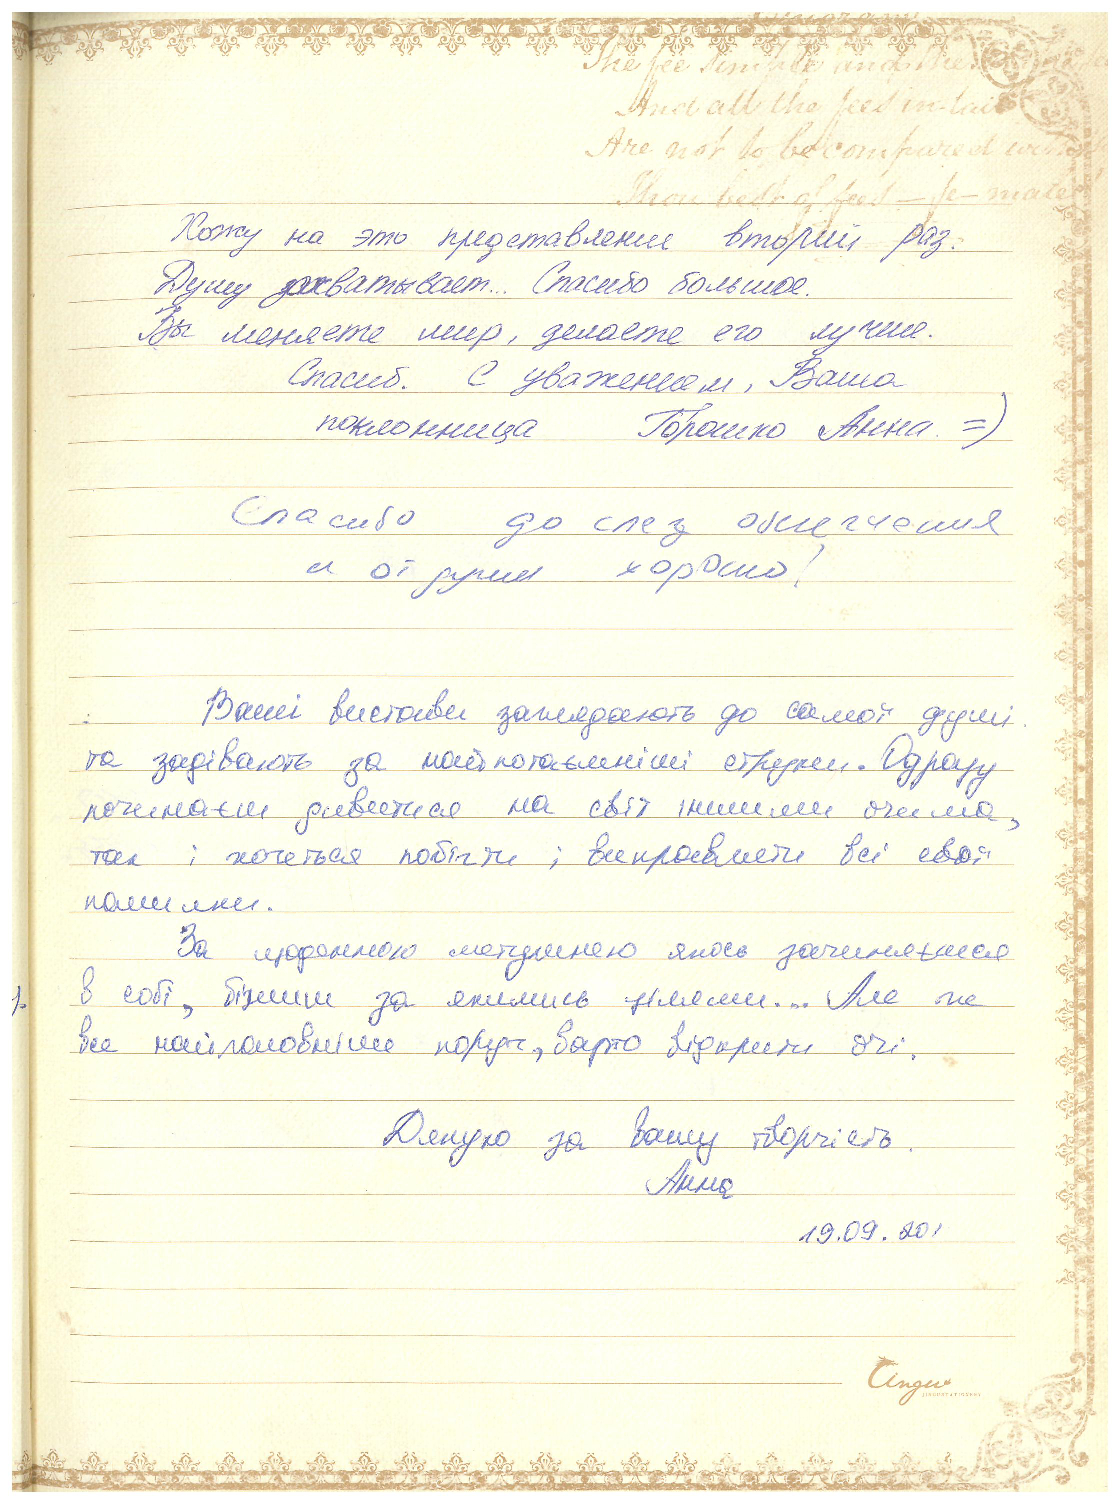 The fee simple and the simple fee
And all the fees in tail
Are not to be compared with thee
Thou best of fees — fe-male
Хожу на это представление вторый раз.
Душу захватывает... Спасибо большое.
Вы меняете мир, делаете его лучше.
Спасиб. С уважением, Ваша
поклонница Горошко Анна =)
Спасибо до слез облегчения
и от души хорошо!
Ваші вистави заглядають до самої душі
та задівають за найпотаємніші струнки. Одразу
починаєш дивитися на світ іншими очима,
так і хочеться побігти і виправити всі свої
помилки.
За щоденною метушнею якось зачиняємся
в собі, біжиш за якимись цілями... Але ж
все найголовніше поруч, варто відкрити очі.
Дякую за вашу творчість.
Анна
19.09.201